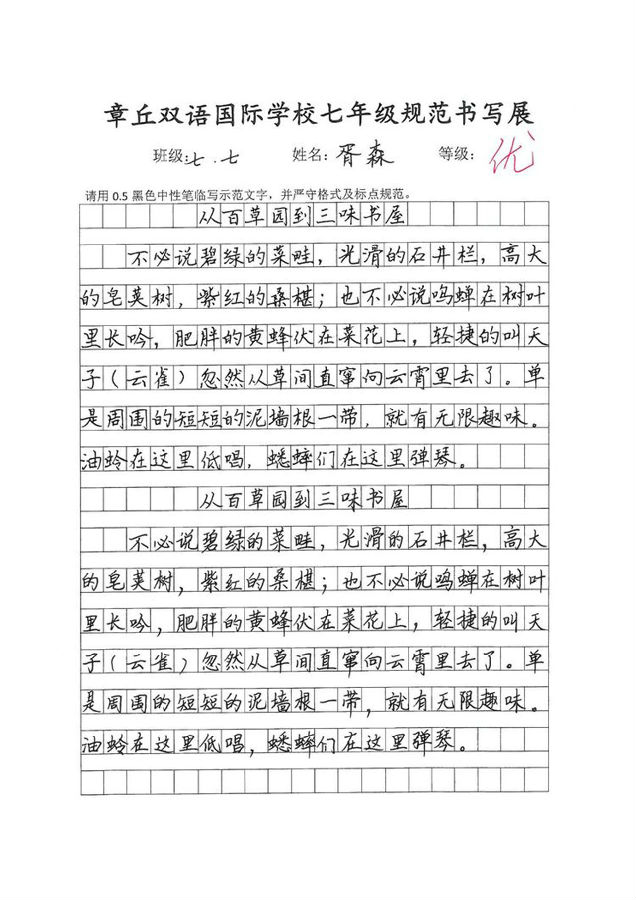 章丘双语国际学校七年级规范书写展
班级:七.七 姓名:胥森 等级:优
请用 0.5 黑色中性笔临写示范文字，并严守格式及标点规范。
从百草园到三味书屋
不必说碧绿的菜畦，光滑的石井栏，高大
的皂荚树，紫红的桑椹；也不必说鸣蝉在树叶
里长吟，肥胖的黄蜂伏在菜花上，轻捷的叫天
子（云雀）忽然从草间直窜向云霄里去了。单
是周围的短短的泥墙根一带，就有无限趣味。
油蛉在这里低唱，蟋蟀们在这里弹琴。
从百草园到三味书屋
不必说碧绿的菜畦，光滑的石井栏，高大
的皂荚树，紫红的桑椹；也不必说鸣蝉在树叶
里长吟，肥胖的黄蜂伏在菜花上，轻捷的叫天
子（云雀）忽然从草间直窜向云霄里去了。单
是周围的短短的泥墙根一带，就有无限趣味。
油蛉在这里低唱，蟋蟀们在这里弹琴。